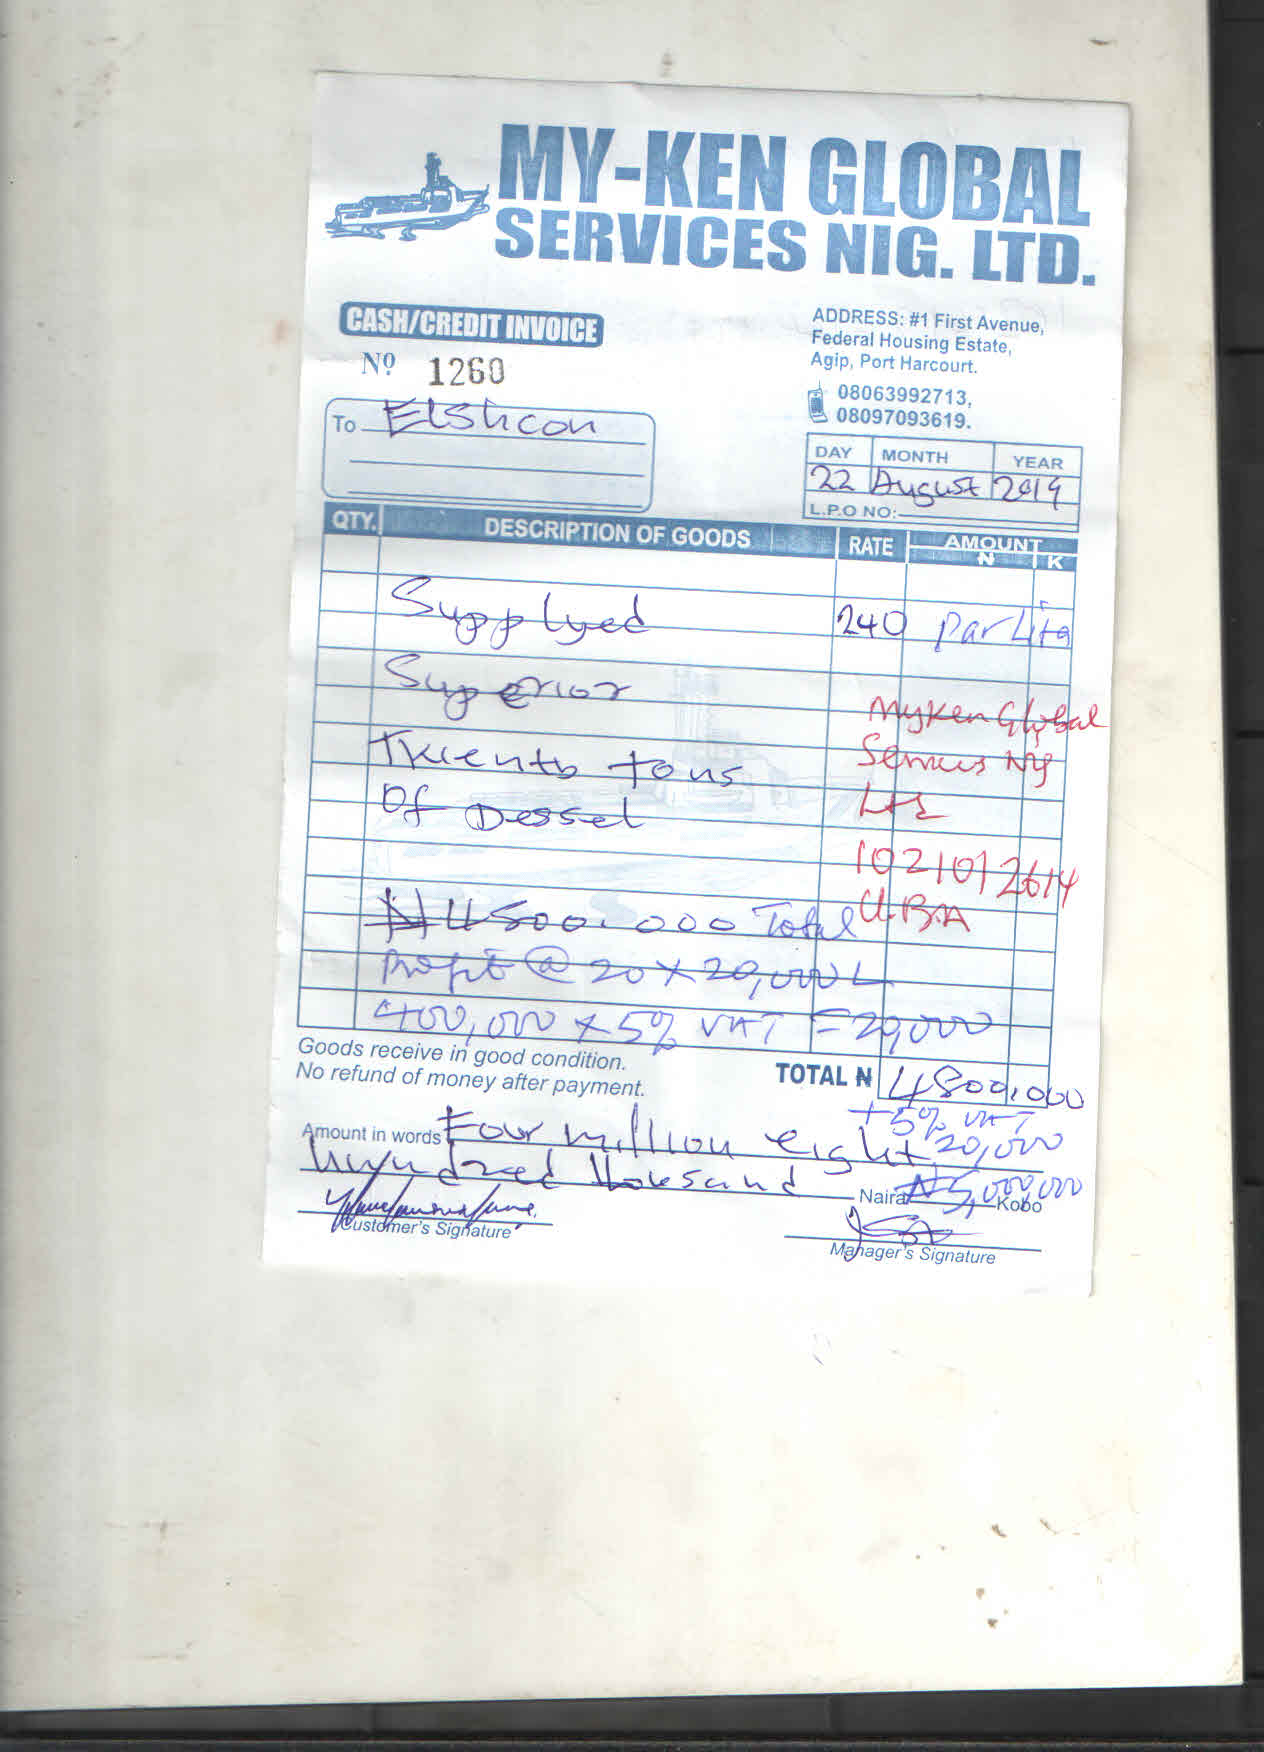 MY-KEN GLOBAL
SERVICES NIG. LTD.
CASH/CREDIT INVOICE
Nº 1260
ADDRESS: #1 First Avenue,
Federal Housing Estate,
Agip, Port Harcourt.
08063992713,
08097093619.
To Elshcon
DAY MONTH YEAR
22 August 2019
L.P.O NO:
QTY. DESCRIPTION OF GOODS RATE AMOUNT
₦ K
Supplyed 240 par Lita
Superior
Myken Global
Services Nig
Ltd
Twenty tons
Of Dessel
1021012614
U.B.A
₦4800.000 Total
Profit @ 20 x 20,000 L
400,000 x 5% VAT = 20,000
Goods receive in good condition.
No refund of money after payment.
TOTAL ₦ 4800.000
+ 5% VAT
20,000
Amount in words Four million eight
hundred thousand Naira ₦5,000,000 Kobo
Customer's Signature
Manager's Signature